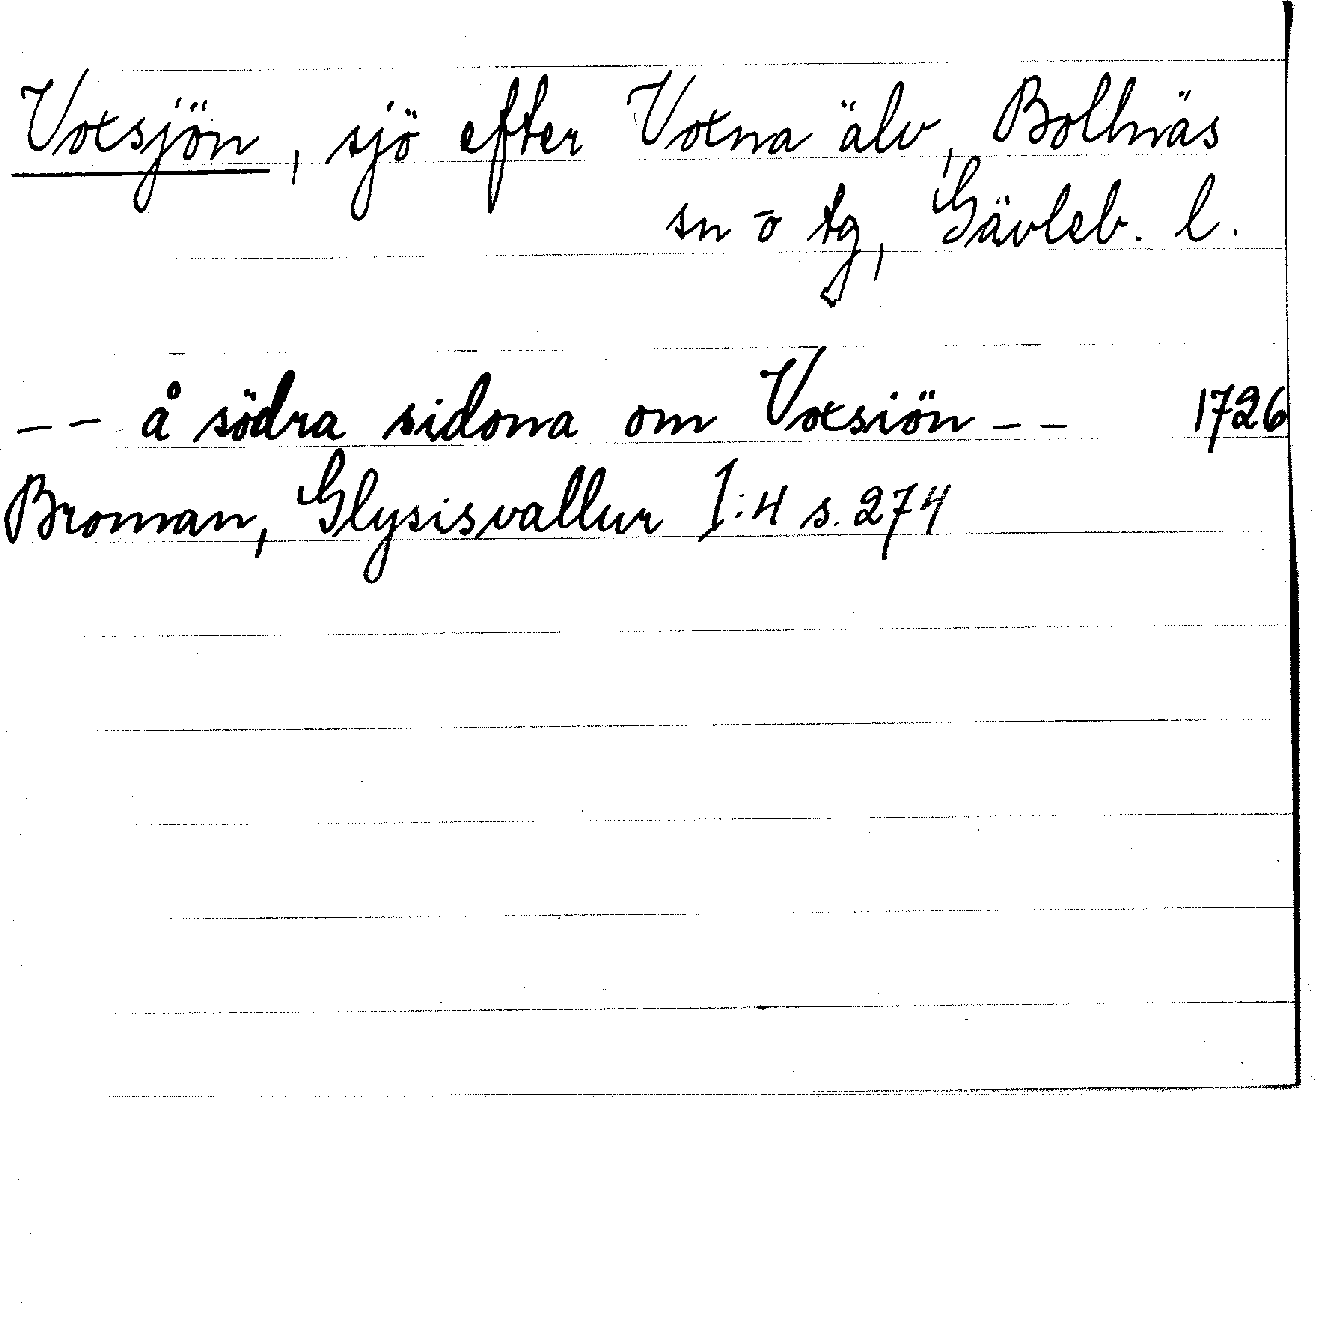 Voxsjön, sjö efter Voxna älv, Bollnäs
sn o tg, Gävleb. l.
-- å södra sidona om Voxsiön -- 1726
Broman, Glysisvallur I:4 s. 274